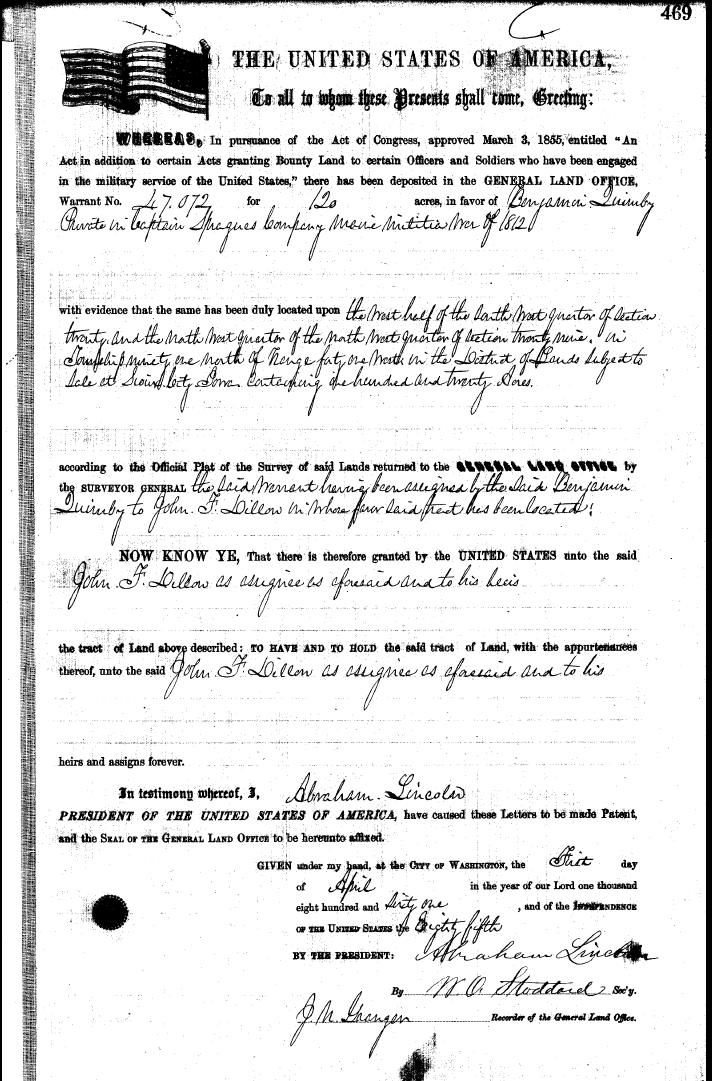 469
THE UNITED STATES OF AMERICA,
To all to whom these Presents shall come, Greeting:
WHEREAS, In pursuance of the Act of Congress, approved March 3, 1855, entitled "An
Act in addition to certain Acts granting Bounty Land to certain Officers and Soldiers who have been engaged
in the military service of the United States," there has been deposited in the GENERAL LAND OFFICE,
Warrant No. 47.072 for 120 acres, in favor of Benjamin Quimby
Private in Captain Spragues Company Maine Militia War of 1812
with evidence that the same has been duly located upon the West half of the South West quarter of Section
twenty. and the North West quarter of the North West quarter of Section twenty nine. in
Township ninety one North of Range forty one West in the District of Lands Subject to
Sale at Sioux City Iowa Containing one hundred and twenty Acres.
according to the Official Plat of the Survey of said Lands returned to the GENERAL LAND OFFICE by
the SURVEYOR GENERAL the said Warrant having been assigned by the said Benjamin
Quimby to John. F. Dillon in whose favor said tract has been located:
NOW KNOW YE, That there is therefore granted by the UNITED STATES unto the said
John. F. Dillon as assignee as aforesaid and to his heirs
the tract of Land above described: TO HAVE AND TO HOLD the said tract of Land, with the appurtenances
thereof, unto the said John F. Dillon as assignee as aforesaid and to his
heirs and assigns forever.
In testimony whereof, I, Abraham. Lincoln
PRESIDENT OF THE UNITED STATES OF AMERICA, have caused these Letters to be made Patent,
and the SEAL OF THE GENERAL LAND OFFICE to be hereunto affixed.
GIVEN under my hand, at the CITY OF WASHINGTON, the First day
of April in the year of our Lord one thousand
eight hundred and Sixty one, and of the INDEPENDENCE
OF THE UNITED STATES the Eighty fifth
BY THE PRESIDENT: Abraham Lincoln
By W. O. Stoddard Sec'y.
J. N. Granger Recorder of the General Land Office.